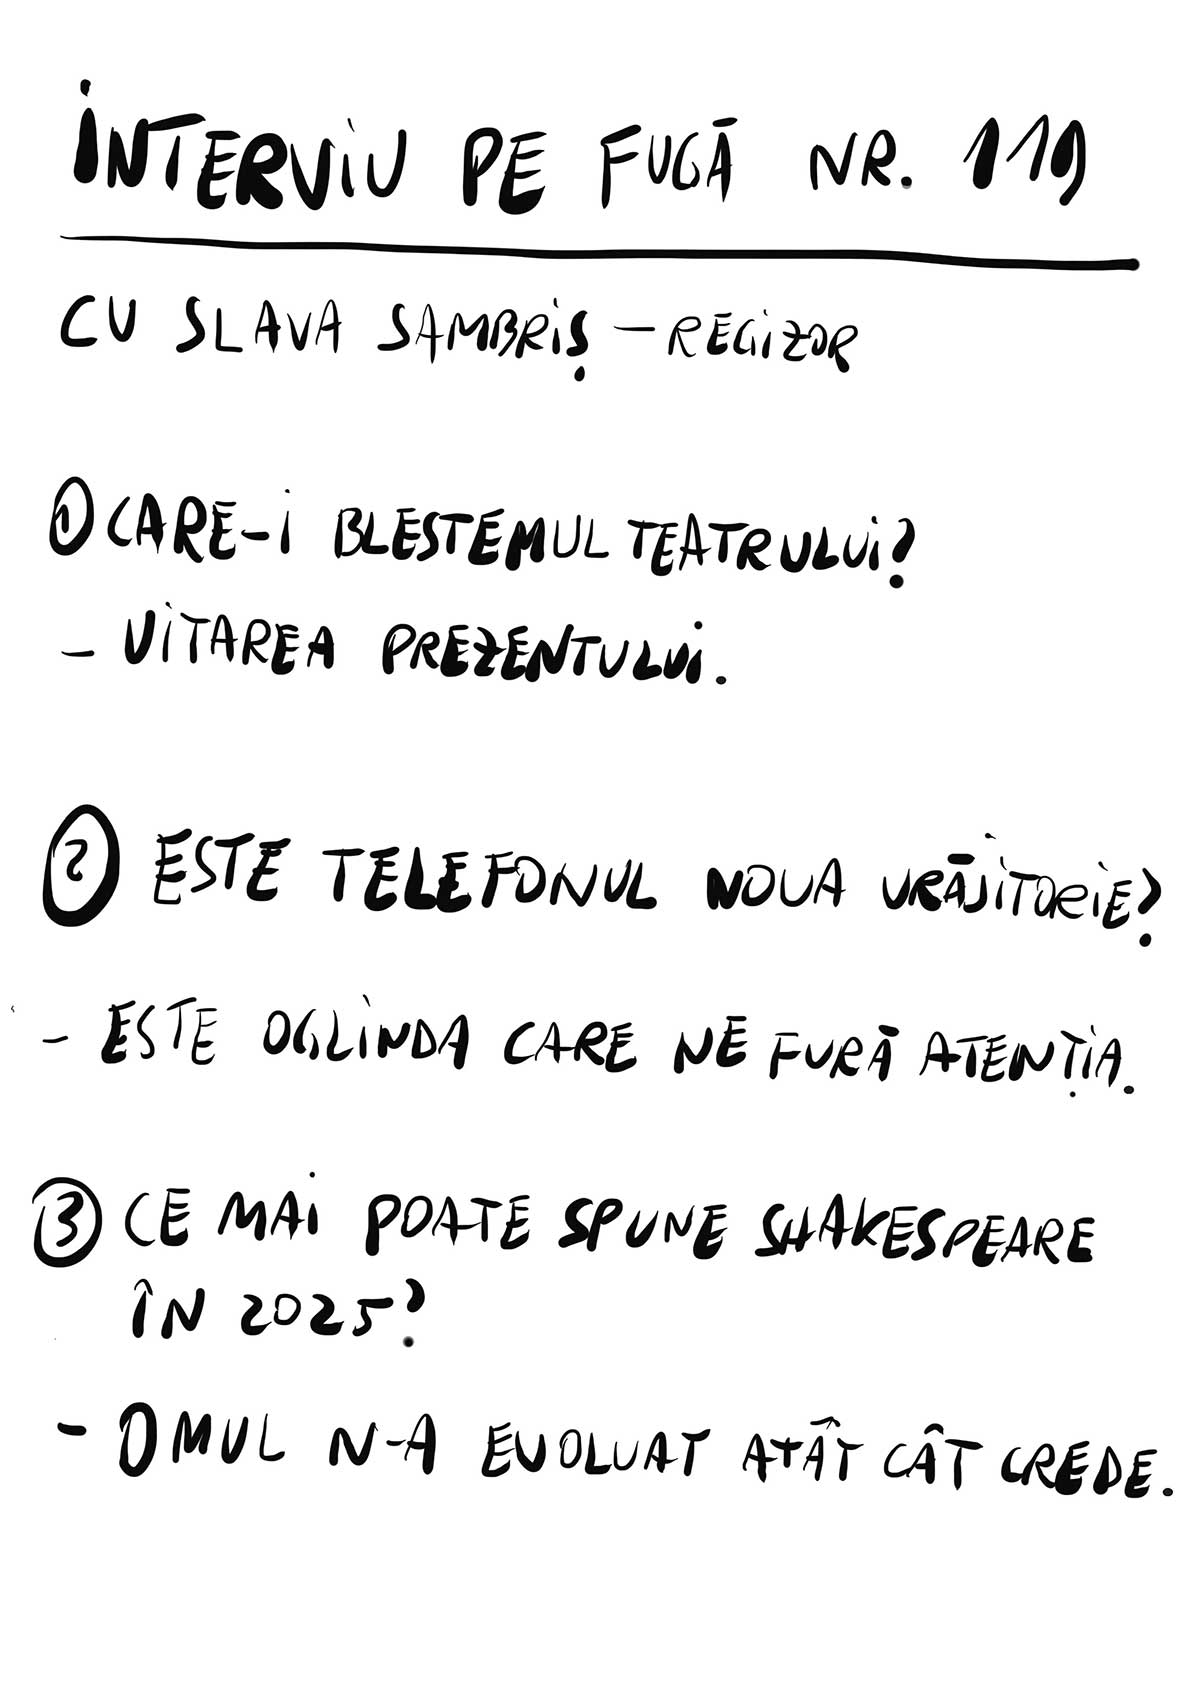 INTERVIU PE FUGĂ NR. 119
CU SLAVA SAMBRIȘ – REGIZOR
1 CARE-I BLESTEMUL TEATRULUI?
- UITAREA PREZENTULUI.
2 ESTE TELEFONUL NOUA VRĂJITORIE?
- ESTE OGLINDA CARE NE FURĂ ATENȚIA.
3 CE MAI POATE SPUNE SHAKESPEARE
ÎN 2025?
- OMUL N-A EVOLUAT ATÂT CÂT CREDE.